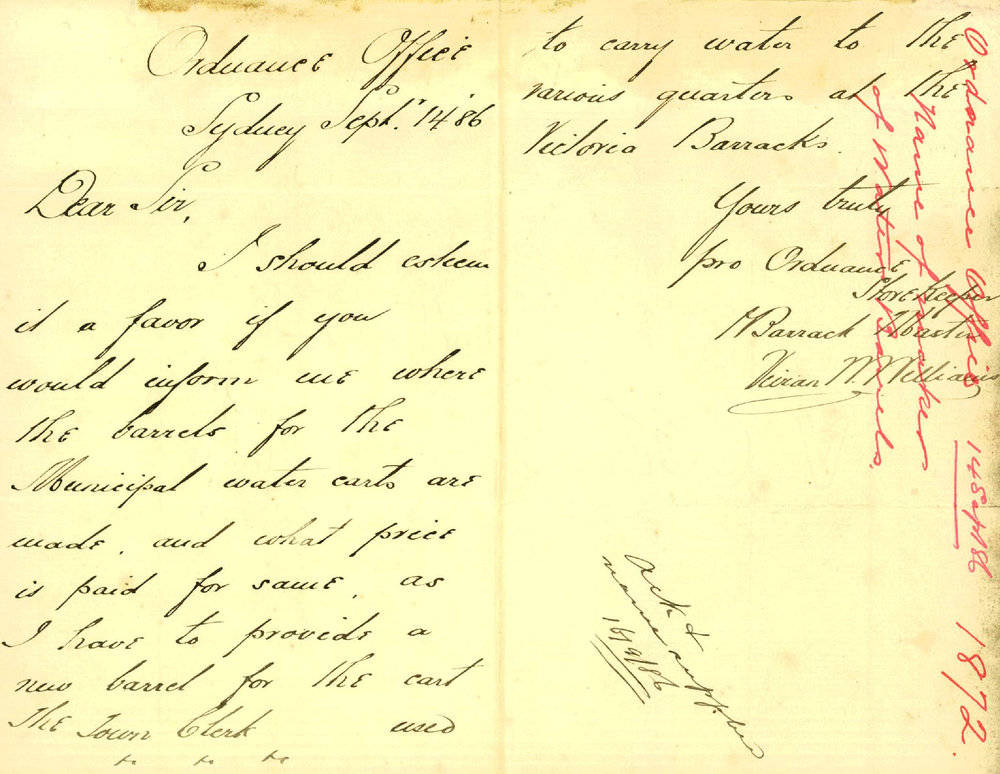 Ordnance Office
Sydney Sept. 14" 86
Dear Sir,
I should esteem
it a favor if you
would inform me where
the barrels for the
Municipal water carts are
made, and what price
is paid for same, as
I have to provide a
new barrel for the cart
The Town Clerk used
to carry water to the
various quarters at the
Victoria Barracks.
Yours truly
pro Ordnance
Storekeeper
& Barrack Master
Vivian M. Williams
Ack &
name supplied
16/9/86
Ordnance Office
14 Sept 86
1872.
Name of maker
of Water Barrels.